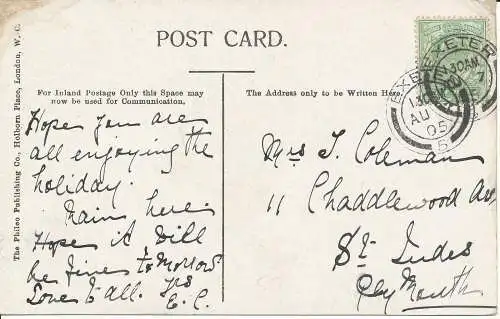 POST CARD.
The Phileo Publishing Co., Holborn Place, London, W. C.
For Inland Postage Only this Space may
now be used for Communication.
The Address only to be Written Here.
Hope you are
all enjoying the
holiday.
Rain here.
Hope it will
be fine to Morrow
Love to all. Yrs
E. C.
Mrs T. Coleman
11 Chaddlewood Av
St Judes
Plymouth
EXETER
AU
05